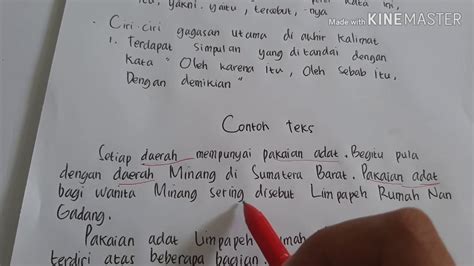 itu, yakni, yaitu, tersebut, -nya
Made with KINEMASTER
- Ciri-ciri gagasan utama di akhir kalimat
1. Terdapat simpulan yang ditandai dengan
kata "Oleh karena itu, Oleh sebab itu,
Dengan demikian"
Contoh teks
Setiap daerah mempunyai pakaian adat. Begitu pula
dengan daerah Minang di Sumatera Barat. Pakaian adat
bagi wanita Minang sering disebut Limpapeh Rumah Nan
Gadang.
Pakaian adat Limpapeh
terdiri atas beberapa bagian.